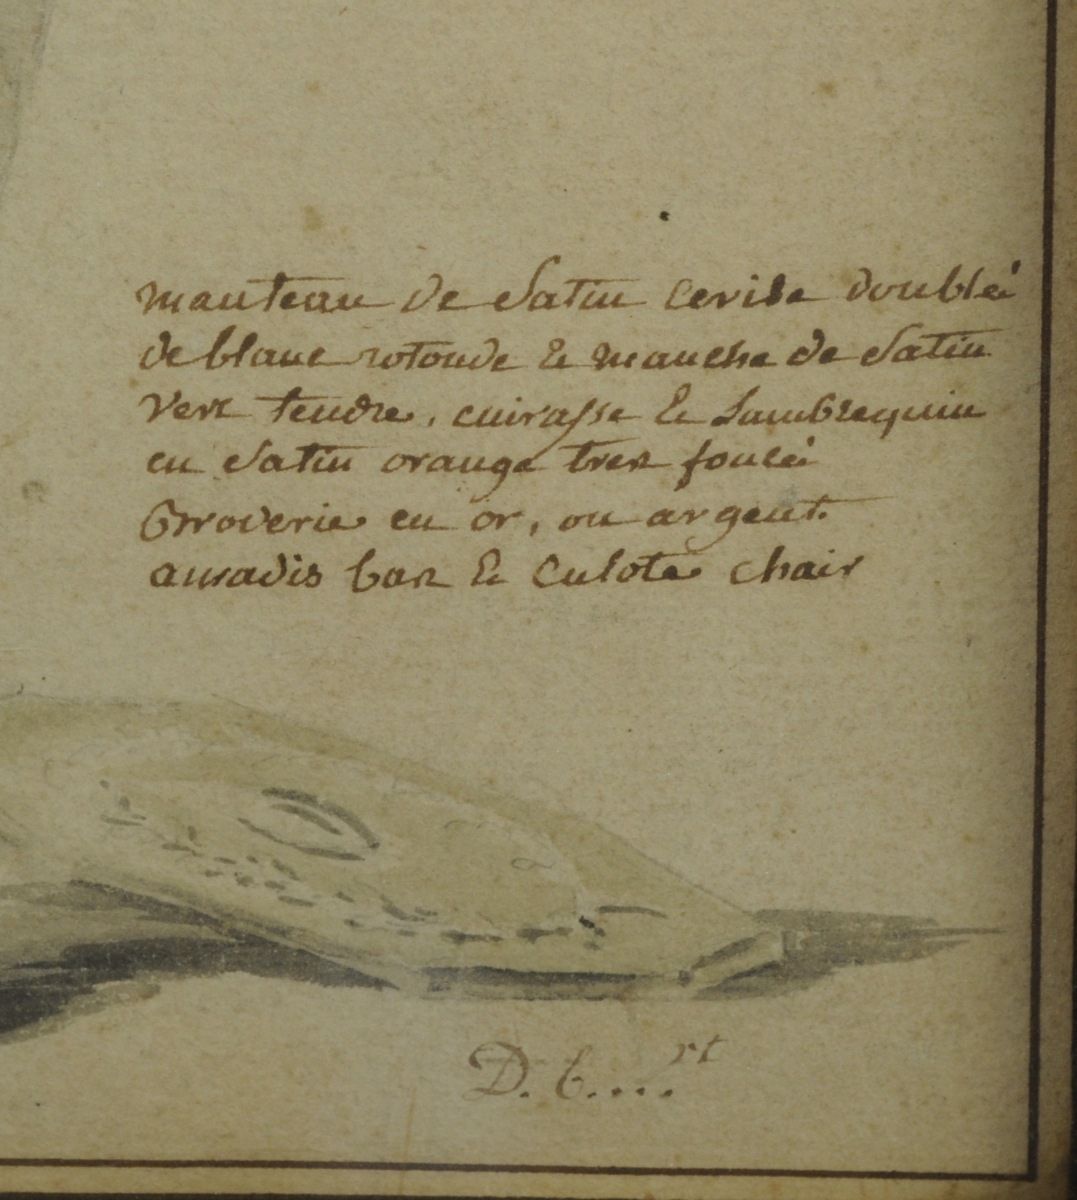 manteau de Satin cerise doublé
de blanc rotonde & manche de Satin
vert tendre, cuirasse & Lambrequin
en Satin orange tres foncé
Broderie en or, ou argent.
amadis bas & culote chair
D. b....rt